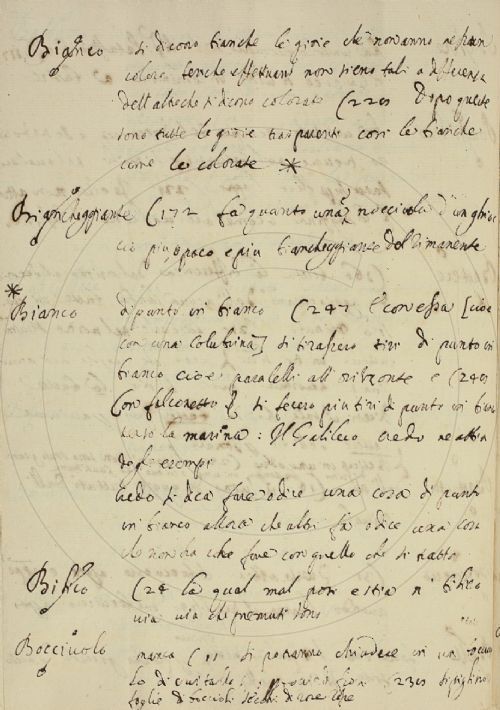 Bianco si dicono bianche le gioie che non anno nessun
colore benche effettuam. non sieno tali a differenza
dell'altre che si dicono colorate (229 Dopo queste
sono tutte le gioie trasparenti cosi le bianche
come le colorate *
Biancheggiante (172 fa quanto una nocciuola d'un ghiac
cio più opaco e piu biancheggiante del rimanente
* Bianco di punto in bianco (247 e con essa [cioe
con una colubrina] si tirassero tiri di punto in
bianco cioe paralelli all'orizonte e (248
Con falconetto si fecero piu tiri di punto in bian
verso la marina: Il Galileo credo ne abbia
degli esempi
credo si dica fare o dire una cosa di punto
in bianco allora che altri fa o dice una cosa
che non ha che fare con quello che si tratta
Bilico (24 la qual mal posi e stia n' bilico
via via che premuti sono
Bocciuolo (11 si potranno chiudere in un bocciuo
lo di 230
foglie di boccioli secchi di rose